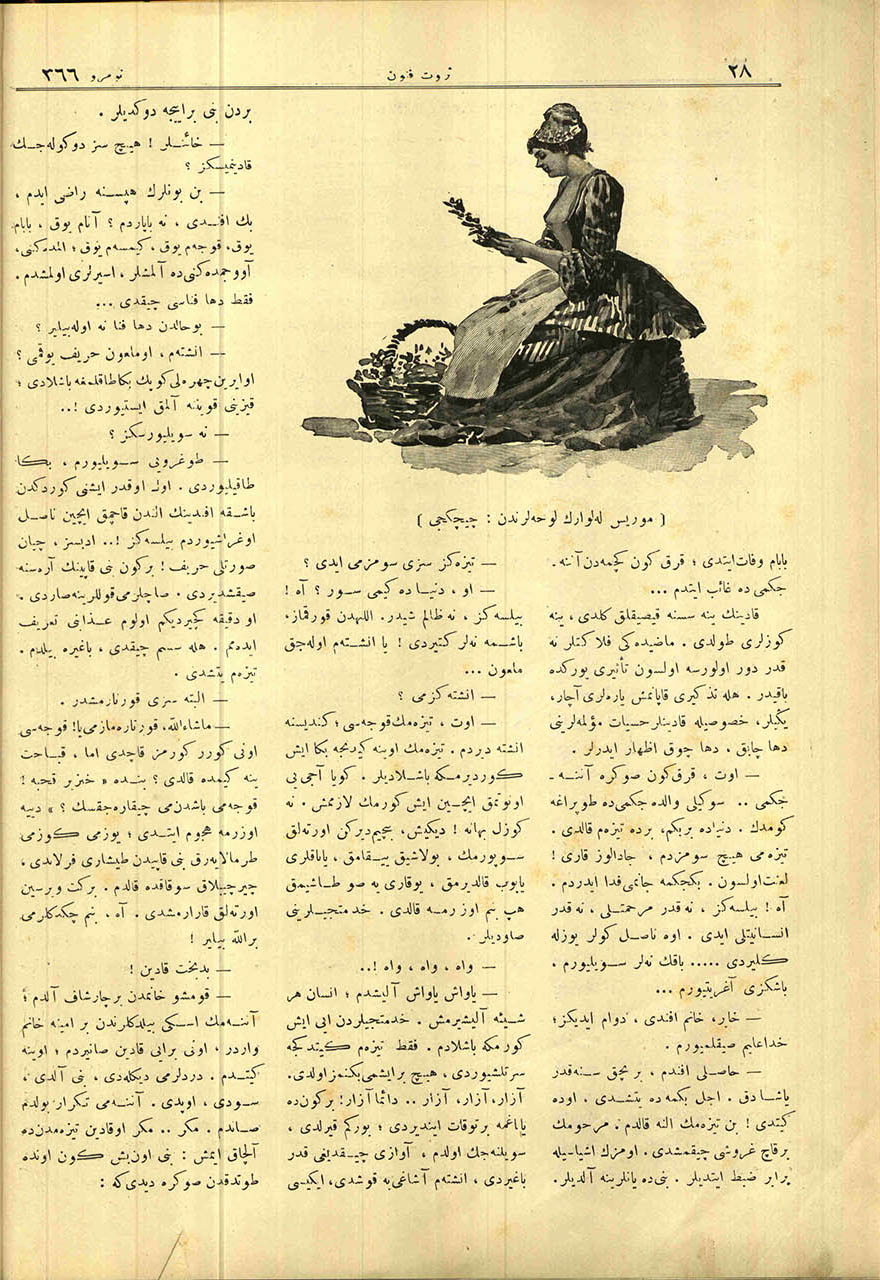 ٢٨
ثروت فنون
نومرو ٣٦٦
( موريس له‌لوارك لوحه‌لرندن : چيچكجى )
بابام وفات ايتدى ؛ قرق كون كچمه‌دن آننه‌ـ
جكمى ده غائب ايتدم ...
قادينك ينه سسنه قيصيقلق كلدى ، ينه
كوزلرى طولدى . ماضيده‌كى فلاكتلر نه
قدر دور اولورسه اولسون تأثيرى يوركده
باقيدر . هله تذكيرى قاپانمش ياره‌لرى آچار،
يكيلر، خصوصيله قادينلر حسيات مؤلمه‌لرينى
دها چابق . دها چوق اظهار ايدرلر .
— اوت ، قرق كون صوكره آننه‌ـ
جكمى .. سوكيلى والده جكمى‌ده طوپراغه
كومدك . دنياده بربكم، برده تيزه‌م قالدى .
تيزه‌مى هيچ سومزدم ، جادالوز قارى !
لعنت اولسون . بكجكمه جانمى فدا ايدردم .
آه ! بيلسه‌كز ، نه‌قدر مرحمتلى ، نه‌قدر
انسانيتلى ايدى . اوه ناصل كولر يوزله
كليردى ..... باقك نه‌لر سويليورم .
باشكزى آغريتيورم ...
— خاير، خانم افندى ، دوام ايديكز؛
خداعليم صيقلميورم .
— حاصلى افندم ، بر بچق سنه‌قدر
ياشادق . اجل بكمه‌ده يتشدى . اوده
كيتدى ! بن تيزه‌مك النه قالدم . مرحومك
برقاچ غروشى چيقمشدى . اومزك اشياسيله
برابر ضبط ايتديلر . بنى ده يانلرينه آلديلر.
— تيزه‌كز سزى سومزمى ايدى ؟
— او ، دنياده كيمى سور ؟ آه !
بيلسه‌كز ، نه ظالم شيدر. اللهدن قورقماز،
باشمه نه‌لر كتيردى ! يا انشته‌م اوله‌جق
ملعون ...
— انشته‌كزمى ؟
— اوت ، تيزه‌مك قوجه‌سى ؛ كنديسنه
انشته ديردم . تيزه‌مك اوينه كيرنجه بكا ايش
كورديرمكه باشلاديلر . كويا آجى‌مى
اونوتمق ايچـين ايش كورمك لازممش . نه
كوزل بهانه ! ديكيش، بيچيم ديركن اورته‌لق
سـوپورمك ، بولاشيق ييـقامق ، ياتاقلرى
ياپوب قالديرمق ، يوقارى‌يه صو طـاشيمق
هپ بنم اوزرمـه قالدى . خدمتجيـلرينى
صاوديلر .
— واه ، واه ، واه !..
— ياواش ياواش آليشدم ؛ انسان هر
شيئه آليشيرمش . خدمتجيلردن ايى ايش
كورمكه باشلادم . فقط تيزه‌م كيتدكجه
سرتلشيوردى ، هيچ برايشمى بكنمز اولدى.
آزار، آزار، آزار .. دائما آزار! بركون‌ده
ياناغمه برتوقات اينديردى ؛ يوركم قيرلدى ،
سويلنه‌جك اولدم ، آوازى چيـقديغى قدر
باغيردى ، انشته‌م آشاغى‌يه قوشدى، ايكيسى
بردن بنى برايجه دوكديلر .
— خائنلر ! هيچ سز دوكوله‌جـك
قادينميسكز ؟
— بن بونلرك هپسـنه راضى ايدم ،
بك افنـدى ، نه ياپاردم ؟ آنام يوق ، بابام
يوق، قوجه‌م يوق ، كيمسه‌م يوق ؛ المده‌كنى،
آووجمده‌كنى‌ده آلمشلر ، اسيرلرى اولمشدم .
فقط دها فناسى چيقدى ...
— بوحالدن دها فنا نه اوله‌بيلير ؟
— انشته‌م ، اوملعون حريف يوقمى ؟
اوايرين چهره‌لى كوپك بكاطاقلمغه باشلادى ؛
قيزينى قوينه آلمق ايستيوردى !..
— نه سويليورسكز ؟
— طوغرويى سـويليورم ، بكا
طاقيليوردى . اولـ اوقدر ايشى كوردكدن
باشـقه افندينك الندن قاچمق ايچين ناصل
اوغراشيوردم بيلسه‌كز !.. ادبسز ، چبان
صورتلى حريف ! بركون بنى قاپينك آره‌سنه
صيقشديردى . صاچلرمى قوللرينه‌صاردى .
او دقيقه كچيرديكم اولوم عـذابنى تعريف
ايده‌مم . هله سسم چيقدى ، باغيره بيلدم .
تيزه‌م يتشدى .
— البته سزى قورتارمشدر .
— ماشاءالله، قورتاره‌مازمى‌يا! قوجه‌سى
اونى كورر كورمز قاچدى اما ، قبـاحت
ينه كيمده قالدى ؟ بنـده « خنزير قحبه !
قوجه‌مى باشدن‌مى چيقاره‌جقسك ؟ » دييه
اوزرمه هجوم ايتـدى ؛ يوزمى كـوزمى
طرمالايه‌رق بنى قاپيدن طيشارى فرلاتدى ،
چيرچيپلاق سوقاقده قالدم . بركت ويرسين
اورته‌لق قارارمشدى . آه ، بنم چكدكلرمى
برالله بيلير !
— بدبخت قادين !
— قومشو خانمدن برچارشاف آلدم ؛
آننـه‌مك اسـكى بيلدكلرندن بر امينه خانم
واردر ، اونى برايى قادين صانيردم ؛ اوينه
كيتـدم . دردلرمى ديكله‌دى ، بنى آلدى ،
سـودى ، اوپدى . آننـه‌مى تـكرار بولدم
صـاندم . مكر .. مكر اوقادين تيزه‌مدن‌ده
آلچاق ايمش : بنى اون‌بش كـون اونده
طوتدقدن صوكره ديدى‌كه :